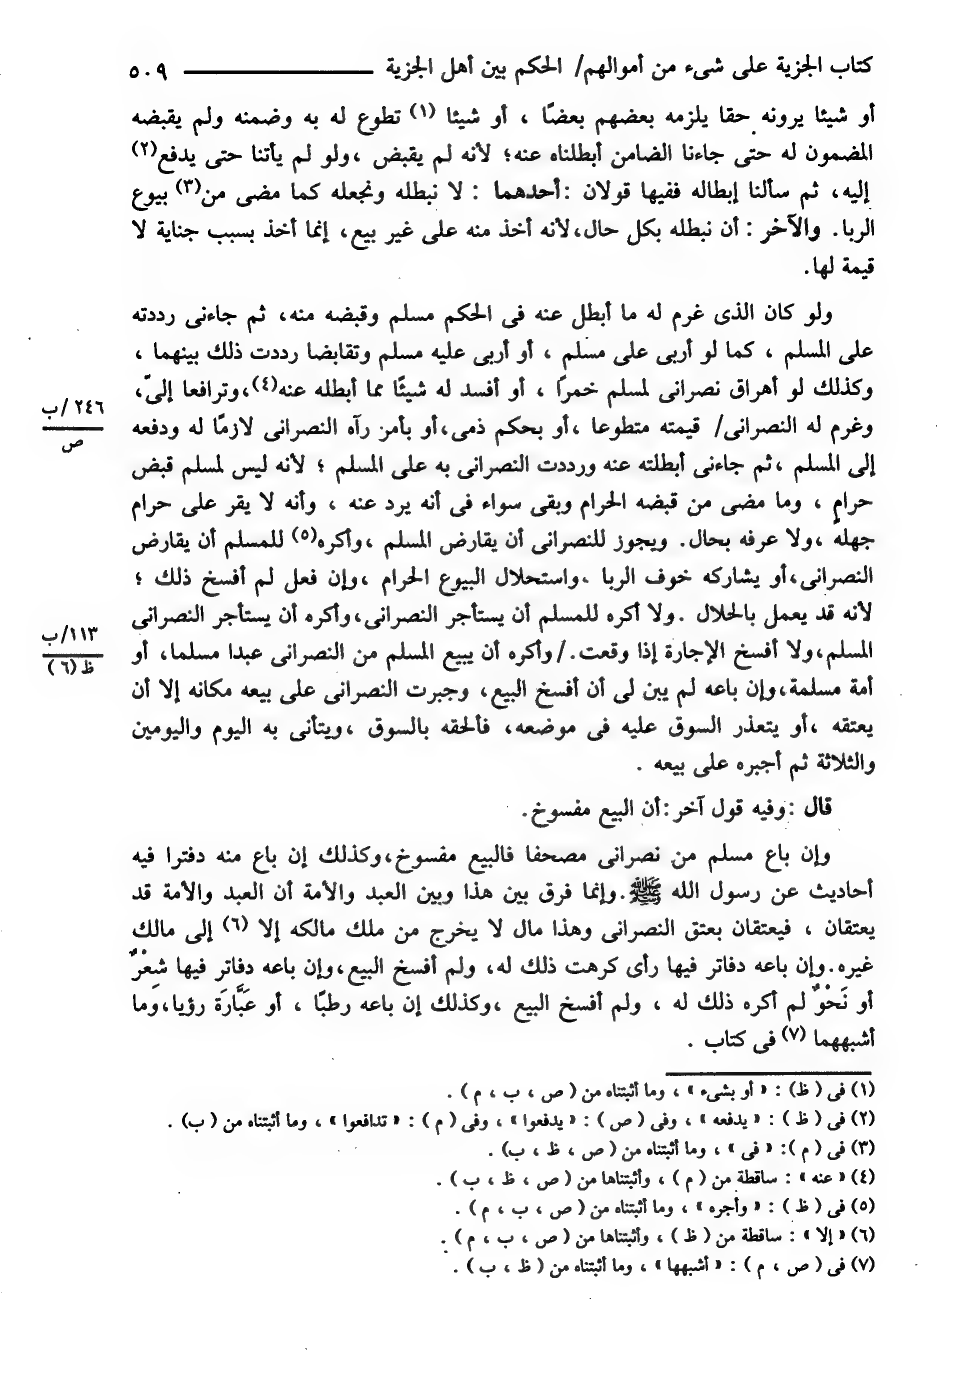 كتاب الجزية على شىء من أموالهم/ الحكم بين أهل الجزية ـــــــــــ ٥٠٩
أو شيئا يرونه حقا يلزمه بعضهم بعضًا ، أو شيئا (١) تطوع له به وضمنه ولم يقبضه
المضمون له حتى جاءنا الضامن أبطلناه عنه؛ لأنه لم يقبض ،ولو لم يأتنا حتى يدفع(٢)
إليه، ثم سألنا إبطاله ففيها قولان :أحدهما : لا نبطله ونجعله كما مضى من(٣) بيوع
الربا. والآخر : أن نبطله بكل حال،لأنه أخذ منه على غير بيع، إنما أخذ بسبب جناية لا
قيمة لها.
ولو كان الذى غرم له ما أبطل عنه فى الحكم مسلم وقبضه منه، ثم جاءنى رددته
على المسلم ، كما لو أربى على مسلم ، أو أربى عليه مسلم وتقابضا رددت ذلك بينهما ،
وكذلك لو أهراق نصرانى لمسلم خمرًا ، أو أفسد له شيئًا مما أبطله عنه(٤)،وترافعا إلىّ،
وغرم له النصرانى/ قيمته متطوعا ،أو بحكم ذمى،أو بأمر رآه النصرانى لازمًا له ودفعه
إلى المسلم ،ثم جاءنى أبطلته عنه ورددت النصرانى به على المسلم ؛ لأنه ليس لمسلم قبض
حرام ، وما مضى من قبضه الحرام وبقى سواء فى أنه يرد عنه ، وأنه لا يقر على حرام
جهله ،ولا عرفه بحال. ويجوز للنصرانى أن يقارض المسلم ،وأكره(٥) للمسلم أن يقارض
النصرانى،أو يشاركه خوف الربا .واستحلال البيوع الحرام ،وإن فعل لم أفسخ ذلك ؛
لأنه قد يعمل بالحلال .ولا أكره للمسلم أن يستأجر النصرانى،وأكره أن يستأجر النصرانى
المسلم،ولا أفسخ الإجارة إذا وقعت./ وأكره أن يبيع المسلم من النصرانى عبدا مسلما، أو
أمة مسلمة،وإن باعه لم يبن لى أن أفسخ البيع، وجبرت النصرانى على بيعه مكانه إلا أن
يعتقه ،أو يتعذر السوق عليه فى موضعه، فألحقه بالسوق ،ويتأنى به اليوم واليومين
والثلاثة ثم أجبره على بيعه .
٢٤٦ /ب
ص
١١٣/ب
ظ (٦)
قال :وفيه قول آخر:أن البيع مفسوخ.
وإن باع مسلم من نصرانى مصحفا فالبيع مفسوخ،وكذلك إن باع منه دفترا فيه
أحاديث عن رسول الله ﷺ.وإنما فرق بين هذا وبين العبد والأمة أن العبد والأمة قد
يعتقان ، فيعتقان بعتق النصرانى وهذا مال لا يخرج من ملك مالكه إلا (٦) إلى مالك
غيره.وإن باعه دفاتر فيها رأى كرهت ذلك له، ولم أفسخ البيع،وإن باعه دفاتر فيها شِعْرٌ
أو نَحْوٌ لم أكره ذلك له ، ولم أفسخ البيع ،وكذلك إن باعه رطبًا ، أو عَبَّارَة رؤيا،وما
أشبههما (٧) فى كتاب .
(١) فى ( ظ) : « أو بشىء » ، وما أثبتناه من ( ص ، ب ، م ) .
(٢) فى ( ظ ) : « يدفعه » ، وفى ( ص ) : « يدفعوا » ، وفى ( م ) : « تدافعوا » ، وما أثبتناه من ( ب) .
(٣) فى ( م ): « فى » ، وما أثبتناه من ( ص ، ظ ، ب) .
(٤) « عنه » : ساقطة من ( م ) ، وأثبتناها من ( ص ، ظ ، ب ) .
(٥) فى ( ظ ) : « وأجره » ، وما أثبتناه من ( ص ، ب ، م ) .
(٦) « إلا » : ساقطة من ( ظ ) ، وأثبتناها من ( ص ، ب ، م ) .
(٧) فى ( ص ، م ) : « أشبهها » ، وما أثبتناه من ( ظ ، ب ) .